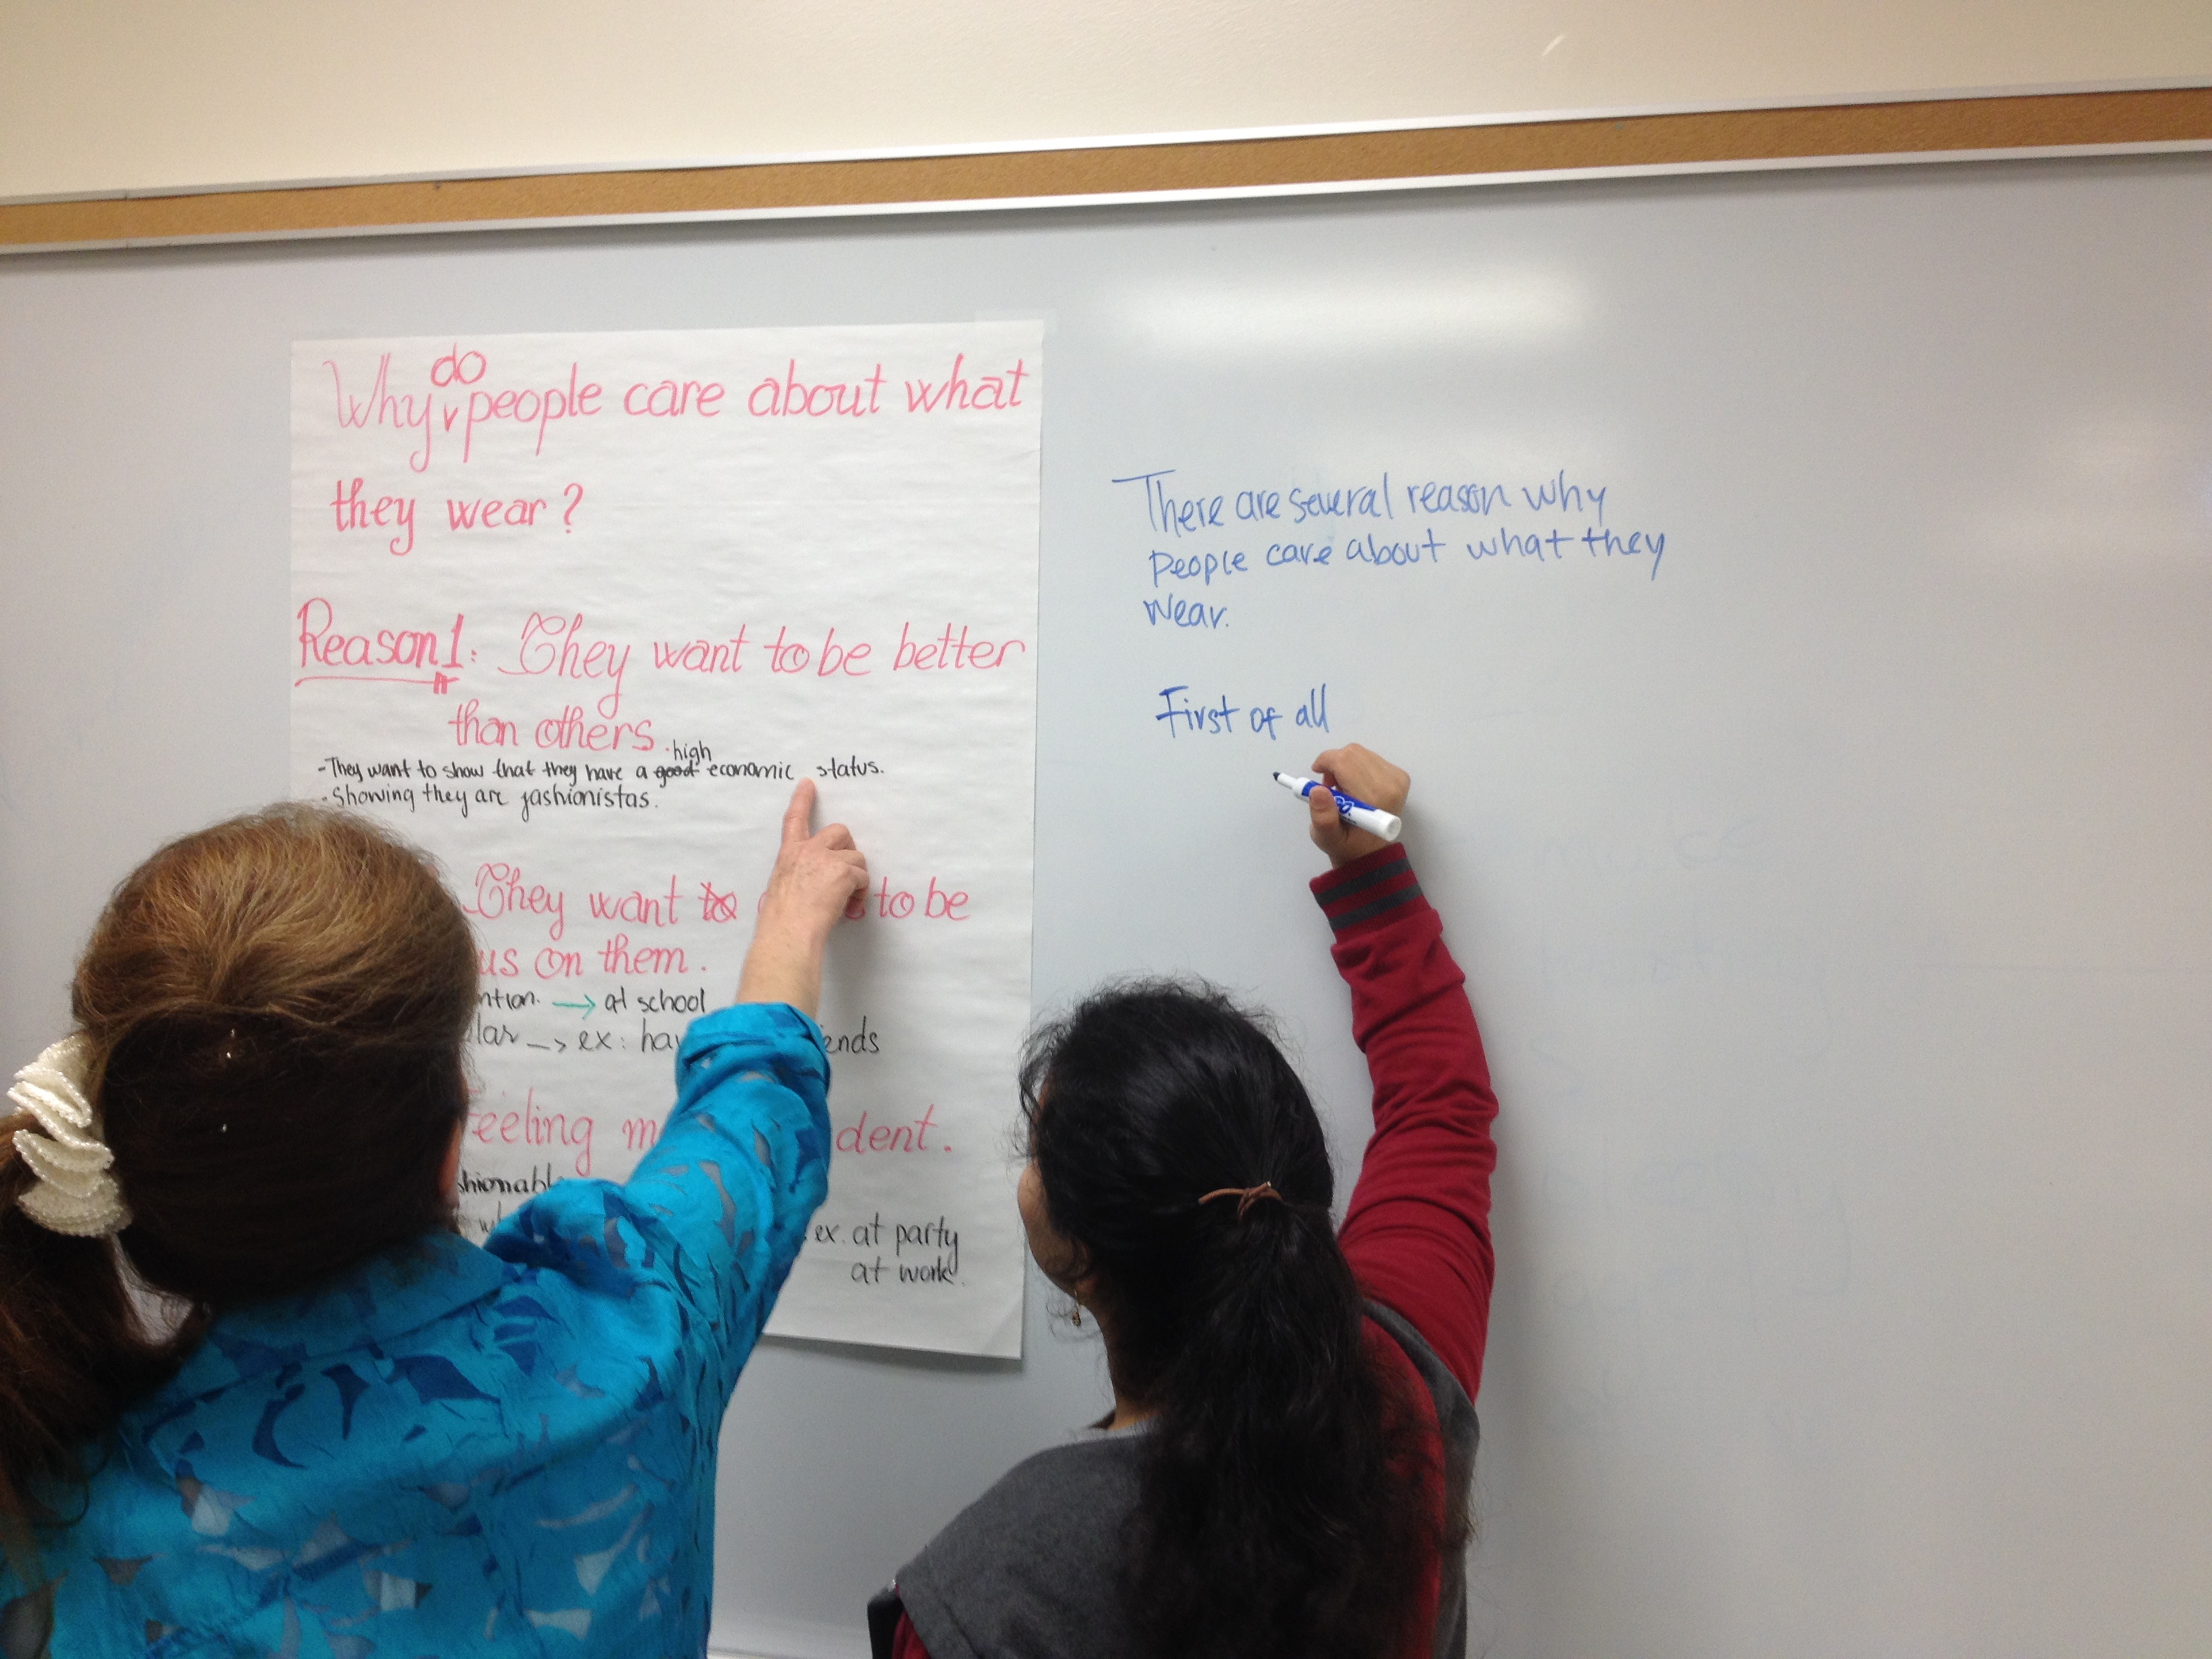 Why do people care about what
they wear?
Reason 1: They want to be better
than others.
- They want to show that they have a good high economic status.
- Showing they are fashionistas.
They want to to be
on them.
→ at school
→ ex:
feeling
ex. at party
at work.
There are several reason why
people care about what they
wear.
First of all